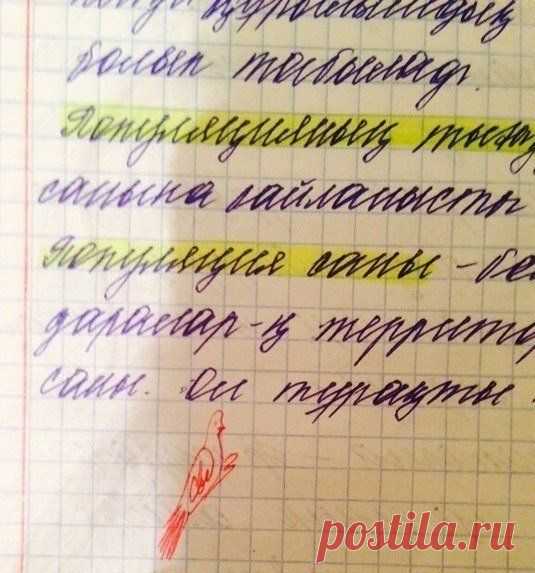 құрылымдық
болып табылады.
Популяцияның
санына байланысты
Популяция саны - бе
даралар-ң территор
саны. Ол тұрақты
postila.ru